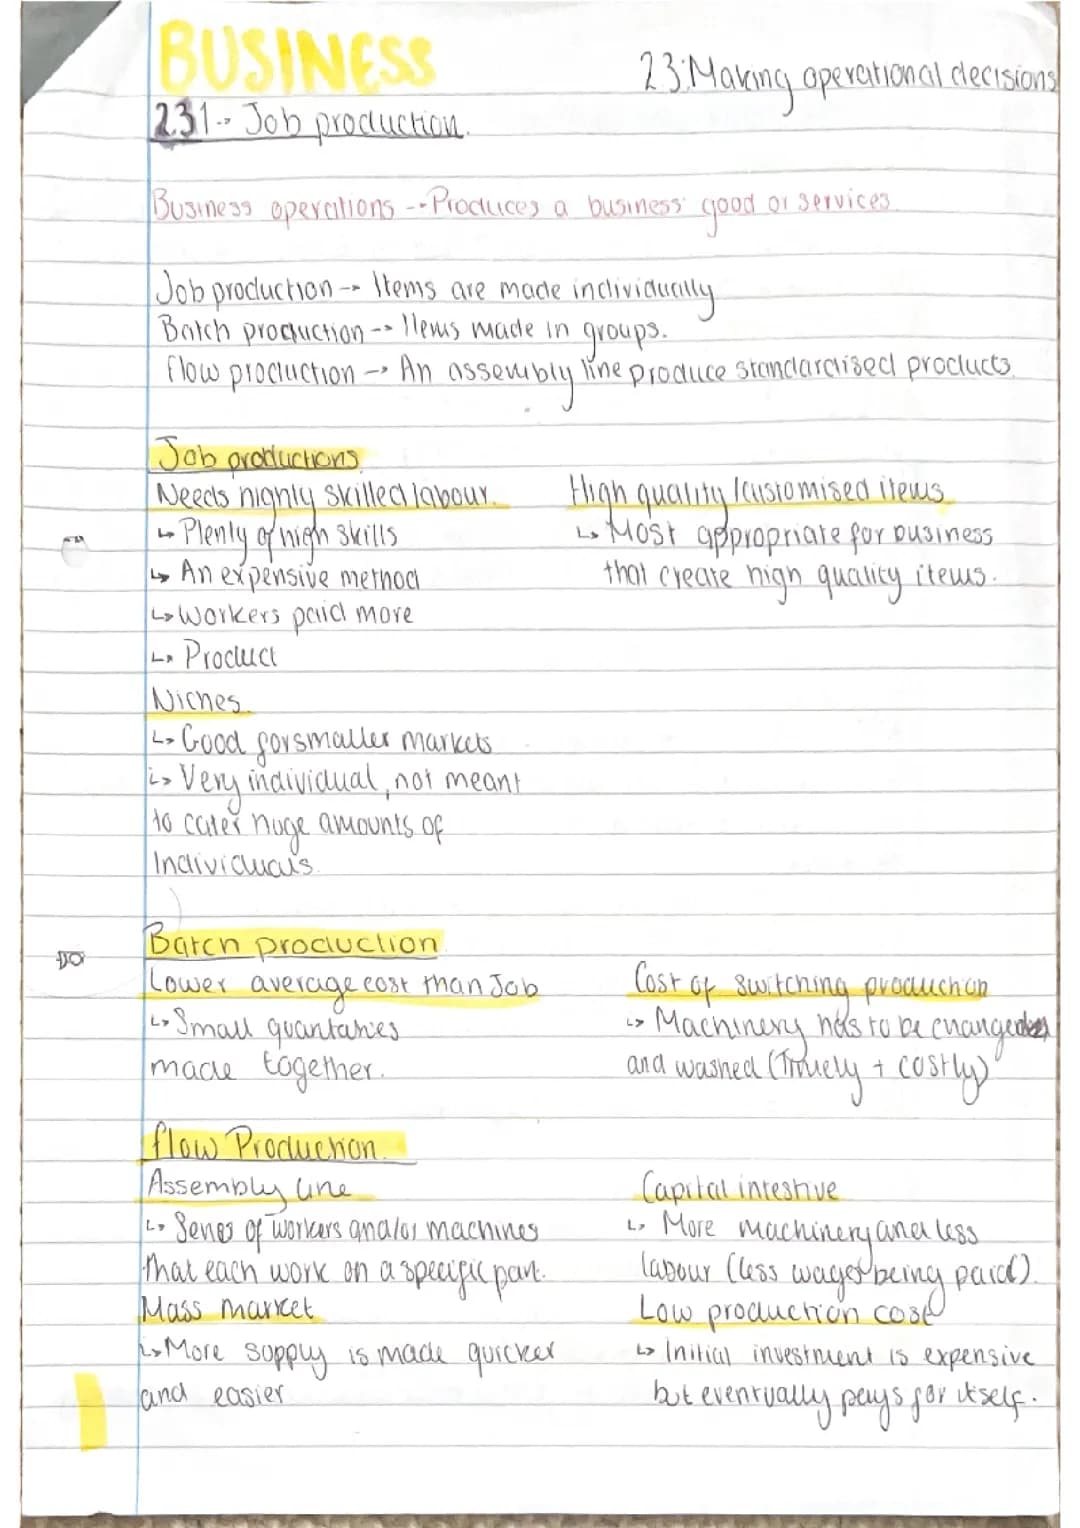 BUSINESS
2.3: Making operational decisions
2.3.1 -> Job production.
Business operations --> Produces a business' good or services
Job production --> Items are made individually
Batch production --> Items made in groups.
flow production --> An assembly line produce standardised products.
Job productions
Needs highly skilled labour.
↳ Plenty of high skills
↳ An expensive method
↳ Workers paid more
↳ Product
Niches.
↳ Good for smaller markets
↳ Very individual, not meant
to cater huge amounts of
Individuals.
High quality / customised items
↳ Most appropriate for business
that create high quality items.
Batch production
Lower average cost than Job
↳ Small quantaties
made together.
Cost of switching production
↳ Machinery has to be changed
and washed (Timely + costly)
flow Production.
Assembly line
↳ Series of workers and/or machines
that each work on a specific part.
Mass market
↳ More supply is made quicker
and easier
Capital intestive
↳ More machinery and less
labour (less wages being paid).
Low production cost
↳ Initial investment is expensive
but eventually pays for itself.